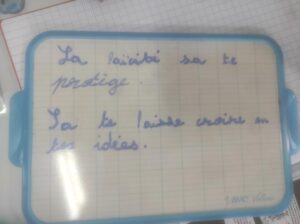 La laïcité sa te
protège.
Sa te laisse croire en
tes idées.